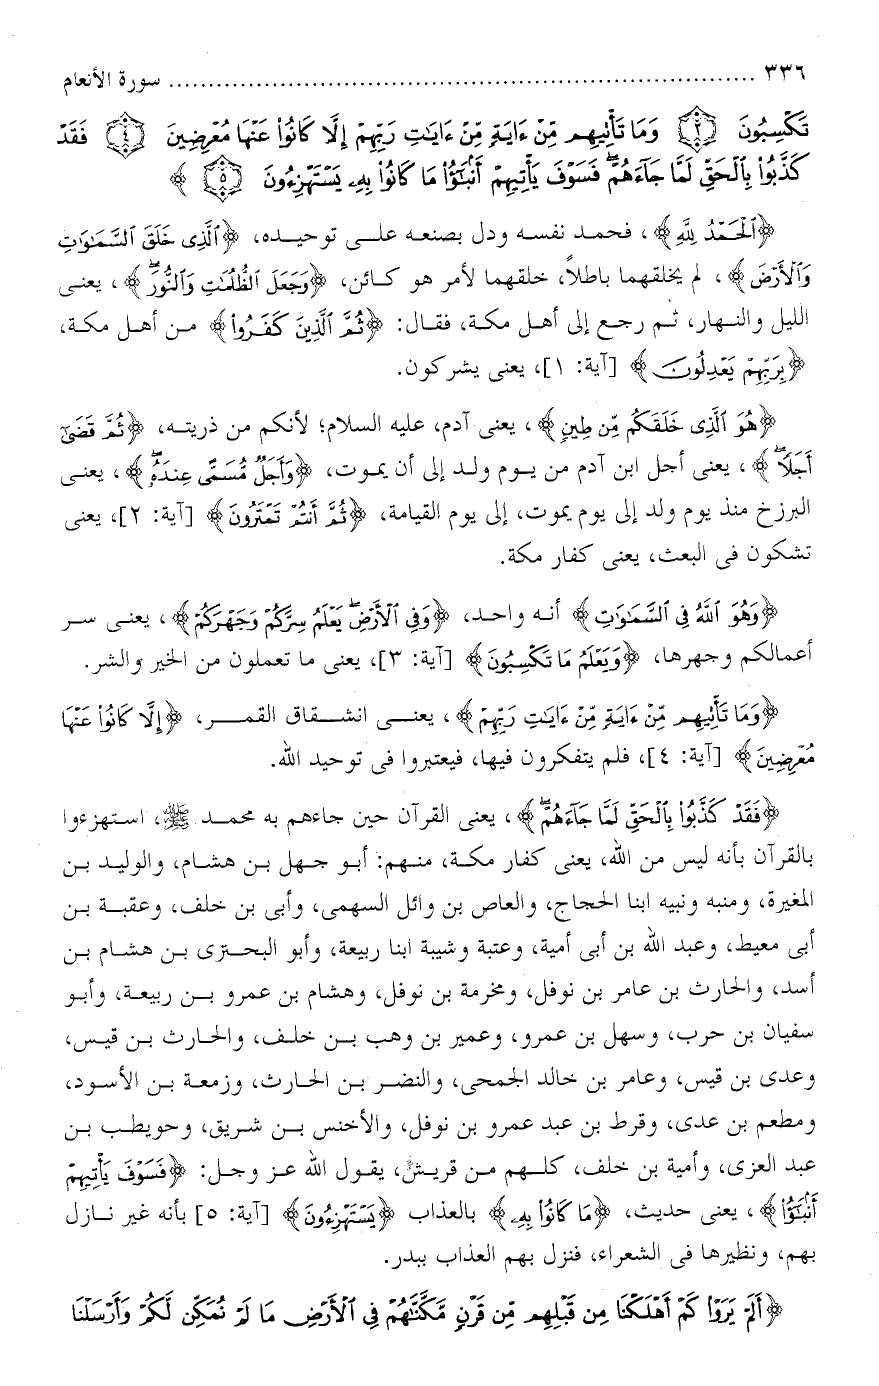 ٣٣٦ ........................................................................ سورة الأنعام
تَكْسِبُونَ ﴿٣﴾ وَمَا تَأْتِيهِم مِّنْ ءَايَةٍ مِّنْ ءَايَٰتِ رَبِّهِمْ إِلَّا كَانُوا۟ عَنْهَا مُعْرِضِينَ ﴿٤﴾ فَقَدْ
كَذَّبُوا۟ بِٱلْحَقِّ لَمَّا جَآءَهُمْ ۖ فَسَوْفَ يَأْتِيهِمْ أَنۢبَٰٓؤُا۟ مَا كَانُوا۟ بِهِۦ يَسْتَهْزِءُونَ ﴿٥﴾ ﴾
﴿ٱلْحَمْدُ لِلَّهِ﴾، فحمد نفسه ودل بصنعه علـى توحيـده، ﴿ٱلَّذِى خَلَقَ ٱلسَّمَٰوَٰتِ
وَٱلْأَرْضَ﴾، لم يخلقهما باطلاً، خلقهما لأمر هو كـائن، ﴿وَجَعَلَ ٱلظُّلُمَٰتِ وَٱلنُّورَ ۖ﴾، يعنـى
الليل والنـهار، ثـم رجع إلى أهـل مكـة، فقـال: ﴿ثُمَّ ٱلَّذِينَ كَفَرُوا۟﴾ مـن أهـل مكـة،
﴿بِرَبِّهِمْ يَعْدِلُونَ﴾ [آية: ١]، يعنى يشركون.
﴿هُوَ ٱلَّذِى خَلَقَكُم مِّن طِينٍ﴾، يعنى آدم، عليه السلام؛ لأنكم من ذريتـه، ﴿ثُمَّ قَضَىٰٓ
أَجَلًا ۖ﴾، يعنى أجل ابن آدم من يـوم ولـد إلى أن يمـوت، ﴿وَأَجَلٌ مُّسَمًّى عِندَهُۥ ۖ﴾، يعنـى
البرزخ منذ يوم ولد إلى يوم يموت، إلى يوم القيامة، ﴿ثُمَّ أَنتُمْ تَمْتَرُونَ﴾ [آية: ٢]، يعنى
تشكون فى البعث، يعنى كفار مكة.
﴿وَهُوَ ٱللَّهُ فِى ٱلسَّمَٰوَٰتِ﴾ أنـه واحـد، ﴿وَفِى ٱلْأَرْضِ ۖ يَعْلَمُ سِرَّكُمْ وَجَهْرَكُمْ﴾، يعنـى سـر
أعمالكم وجهرها، ﴿وَيَعْلَمُ مَا تَكْسِبُونَ﴾ [آية: ٣]، يعنى ما تعملون من الخير والشر.
﴿وَمَا تَأْتِيهِم مِّنْ ءَايَةٍ مِّنْ ءَايَٰتِ رَبِّهِمْ﴾، يعنـى انشـقاق القمـر، ﴿إِلَّا كَانُوا۟ عَنْهَا
مُعْرِضِينَ﴾ [آية: ٤]، فلم يتفكرون فيها، فيعتبروا فى توحيد الله.
﴿فَقَدْ كَذَّبُوا۟ بِٱلْحَقِّ لَمَّا جَآءَهُمْ ۖ﴾، يعنى القرآن حين جاءهم به محمـد ﷺ، استـهزءوا
بالقرآن بأنه ليس من الله، يعنى كفار مكة، منـهم: أبـو جـهل بـن هشـام، والوليـد بـن
المغيرة، ومنبه ونبيه ابنا الحجاج، والعاص بن وائل السهمى، وأبى بن خلف، وعقبـة بـن
أبى معيط، وعبد الله بن أبى أمية، وعتبة وشيبة ابنا ربيعة، وأبو البحـترى بـن هشـام بـن
أسد، والحارث بن عامر بن نوفل، ومخرمة بن نوفل، وهشام بن عمرو بـن ربيعـة، وأبـو
سفيان بن حرب، وسهل بن عمرو، وعمير بن وهب بـن خلـف، والحـارث بـن قيـس،
وعدى بن قيس، وعامر بن خالد الجمحى، والنضـر بـن الحـارث، وزمعـة بـن الأسـود،
ومطعم بن عدى، وقرط بن عبد عمرو بن نوفل، والأخنس بـن شـريق، وحويطـب بـن
عبد العزى، وأمية بن خلف، كلـهم مـن قريـش، يقـول الله عـز وجـل: ﴿فَسَوْفَ يَأْتِيهِمْ
أَنۢبَٰٓؤُا۟﴾، يعنى حديث، ﴿مَا كَانُوا۟ بِهِۦ﴾ بالعذاب ﴿يَسْتَهْزِءُونَ﴾ [آية: ٥] بأنه غير نـازل
بهم، ونظيرها فى الشعراء، فنزل بهم العذاب ببدر.
﴿أَلَمْ يَرَوْا۟ كَمْ أَهْلَكْنَا مِن قَبْلِهِم مِّن قَرْنٍ مَّكَّنَّٰهُمْ فِى ٱلْأَرْضِ مَا لَمْ نُمَكِّن لَّكُمْ وَأَرْسَلْنَا